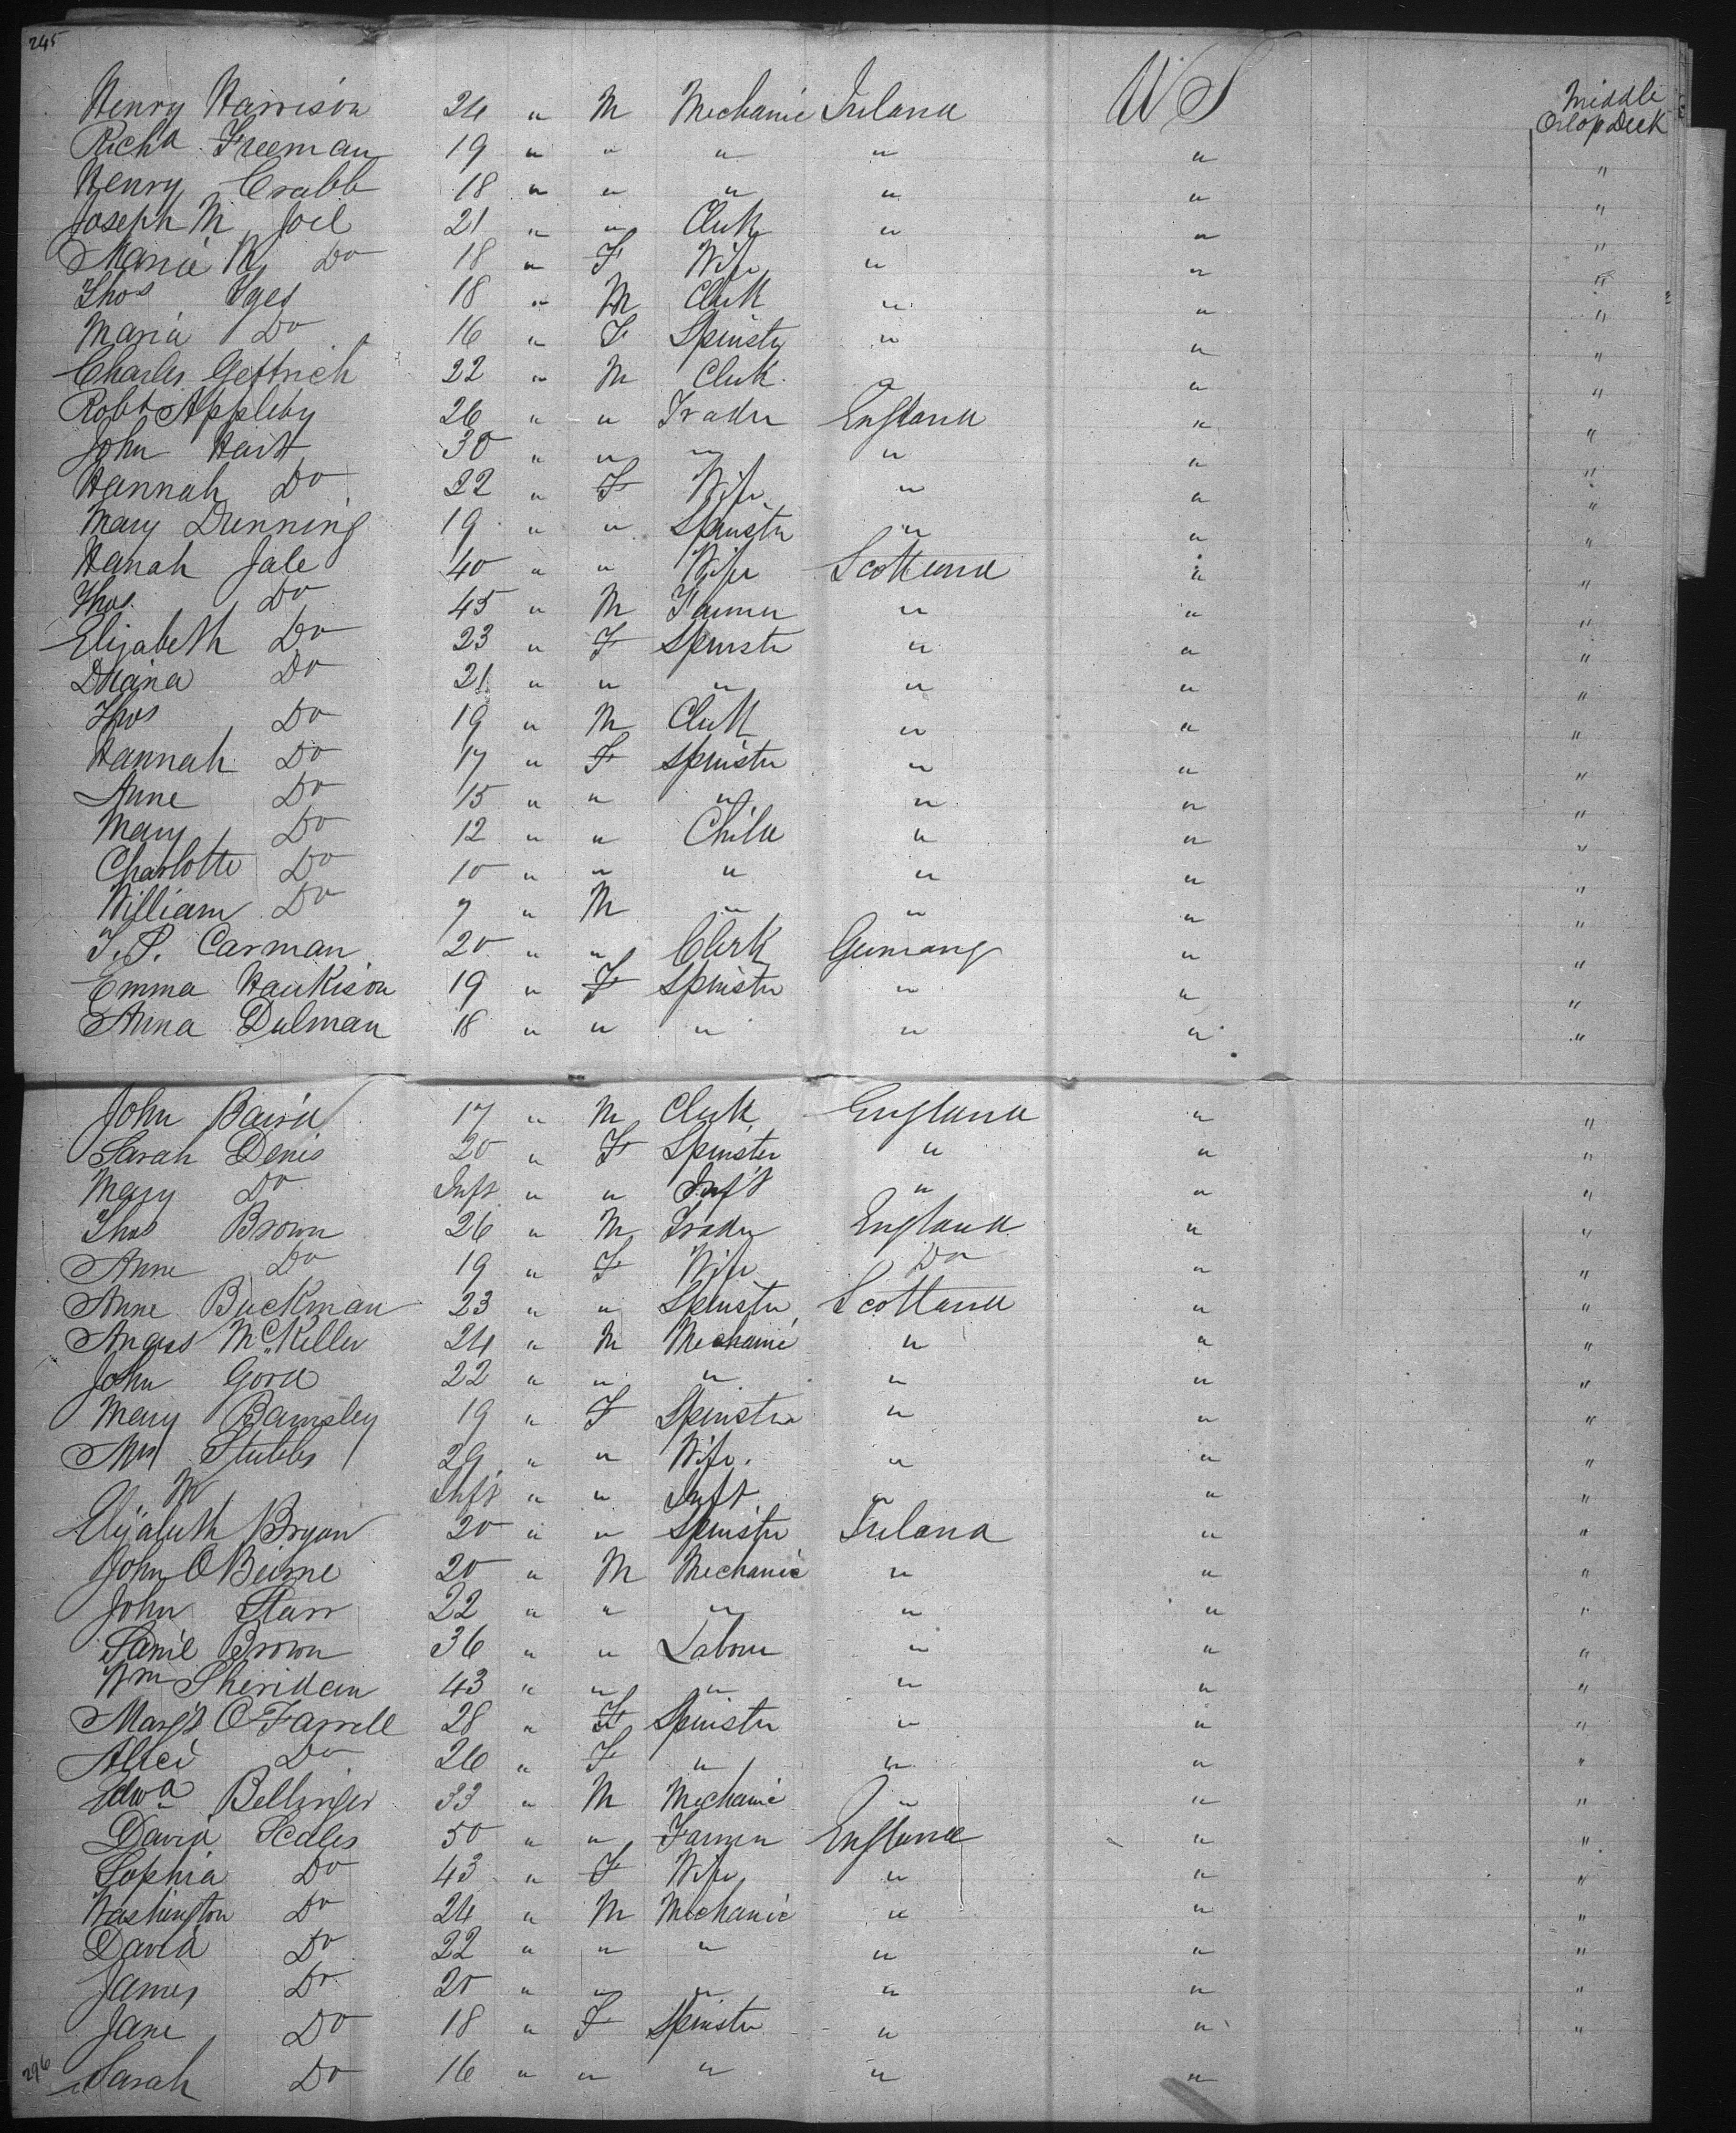 245
Middle
Henry Harrison 24 " M Mechanic Ireland U S Orlop Deck
Richd Freeman 19 " " " " " "
Henry Crabb 18 " " " " " "
Joseph M Joel 21 " " Clerk " " "
Marie M Do 18 " F Wife " " "
Thos 18 " M Clerk " " "
Maria Do 16 " F Spinster " " "
Charles 22 " M Clerk " " "
Robt Appleby 26 " " Trader England " "
John Hart 30 " " " " " "
Hannah Do 22 " F Wife " " "
Mary Dunning 19 " " Spinster " " "
Hanah Jale 40 " " Wife Scotland " "
Thos. Do 45 " M Farmer " " "
Elizabeth Do 23 " F Spinster " " "
Diana Do 21 " " " " " "
Thos Do 19 " M Clerk " " "
Hannah Do 17 " F Spinster " " "
Anne Do 15 " " " " " "
Mary Do 12 " " Child " " "
Charlotte Do 10 " " " " " "
William Do 7 " M " " " "
T. P. Carman 20 " " Clerk Germany " "
Emma Haukison 19 " F Spinster " " "
Anna Dulman 18 " " " " " "
John Baird 17 " M Clerk England " "
Sarah Denis 20 " F Spinster " " "
Mary Do Inft " " Inft " " "
Thos Brown 26 " M Trader England " "
Anne Do 19 " F Wife Do " "
Anne Buckman 23 " " Spinster Scotland " "
Angus McKeller 24 " M Mechanic " " "
John Gord 22 " " " " " "
Mary Bamsley 19 " F Spinster " " "
Mrs Stubbs 29 " " Wife. " " "
Inft " " Inft " " "
Elizabeth Bryan 20 " " Spinster Ireland " "
John O Beirne 20 " M Mechanic " " "
John Starr 22 " " " " " "
Saml Brown 36 " " Labour " " "
Wm Sheridan 43 " " " " " "
Margt O Farrell 28 " F Spinster " " "
Alice Do 26 " F " " " "
Edwd Bellinger 33 " M Mechanic " " "
David Scales 50 " " Farmer England " "
Sophia Do 43 " F Wife " " "
Washington Do 24 " M Mechanic " " "
David Do 22 " " " " " "
James Do 20 " " " " " "
Jane Do 18 " F Spinster " " "
296 Sarah Do 16 " " " " "